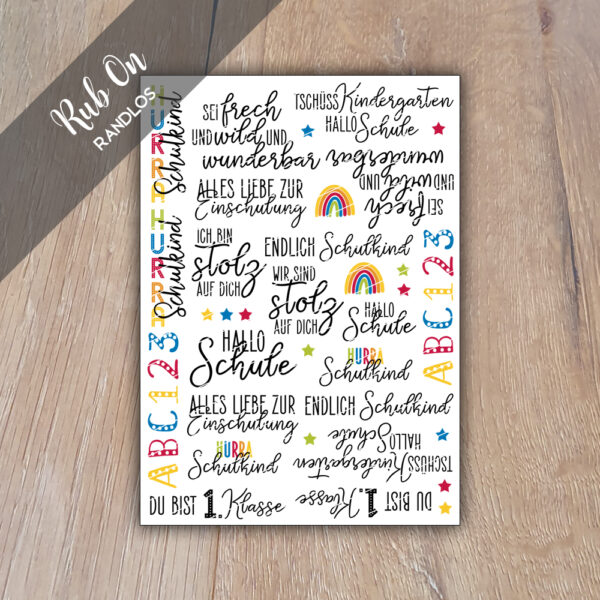 Rub On
RANDLOS
HURRA
Schulkind
HURRA
Schulkind
ABC123
SEI frech
UND wild UND
wunderbar
TSCHÜSS Kindergarten
HALLO Schule
SEI frech
UND wild UND
wunderbar
ALLES LIEBE ZUR
Einschulung
ICH BIN
stolz
AUF DICH
ENDLICH Schulkind
WIR SIND
stolz
AUF DICH
HALLO
Schule
ABC123
HALLO
Schule
HURRA
Schulkind
ALLES LIEBE ZUR
Einschulung
ENDLICH Schulkind
HURRA
Schulkind
TSCHÜSS Kindergarten
HALLO Schule
DU BIST 1. Klasse
DU BIST 1. Klasse